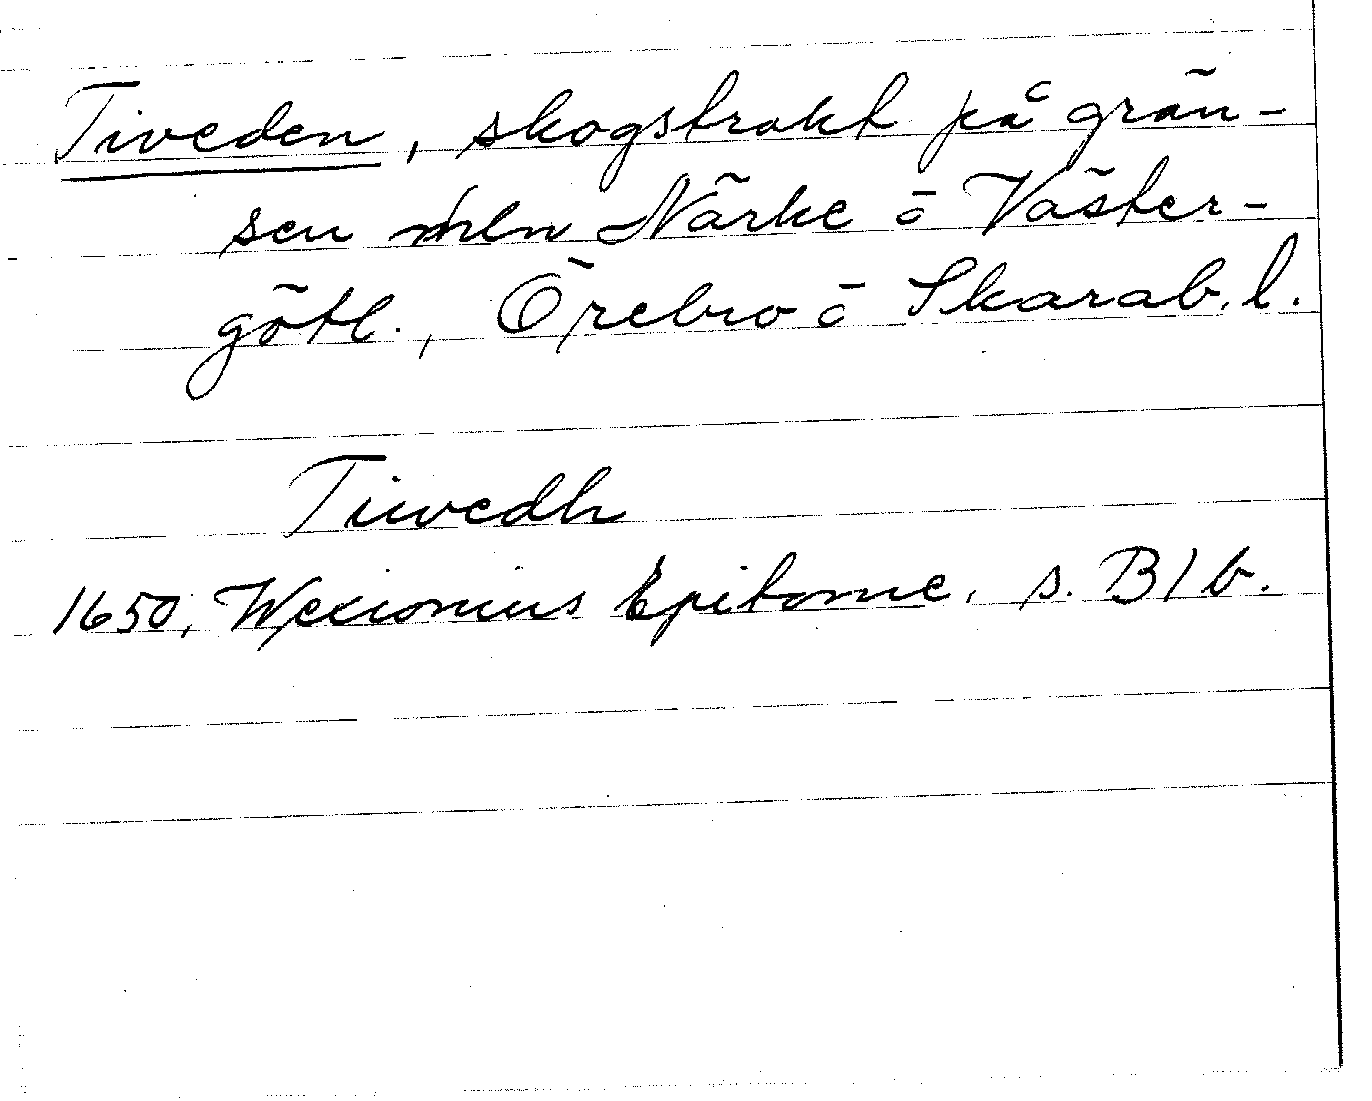 Tiveden, skogstrakt på grän-
sen mln Närke o Väster-
götl., Örebro o Skarab. l.
Tiwedh
1650, Wexionius Epitome, s. B1b.